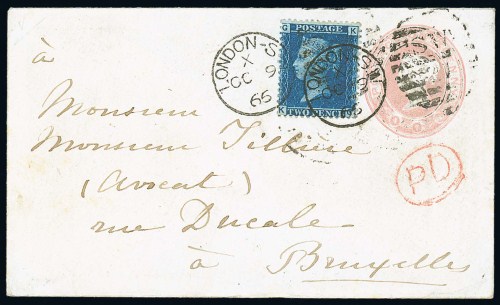 à
Monsieur
Monsieur Tillière
(Avocat)
rue Ducale
à Bruxelles
LONDON-S
X
OC 9
65
G K
POSTAGE
K TWO PENCE G
LONDON-S.W
OC 9
PD